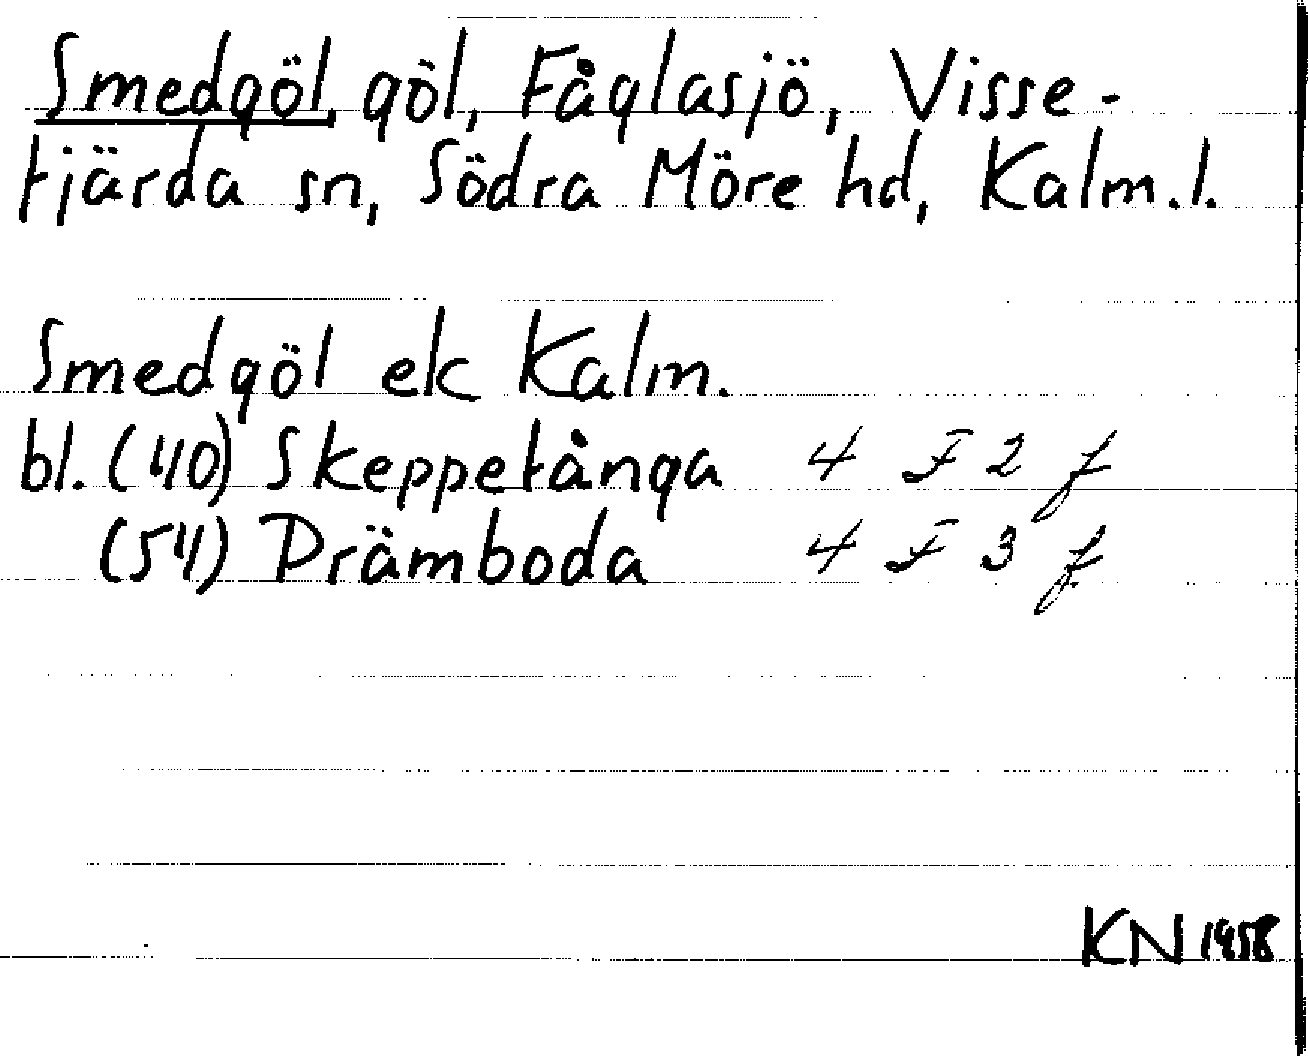 Smedgöl, göl, Fåglasjö, Visse-
fjärda sn, Södra Möre hd, Kalm.l.
Smedgöl ek Kalm.
bl. (40) Skeppetånga 4 F 2 f
(54) Drämboda 4 F 3 f
KN 1958